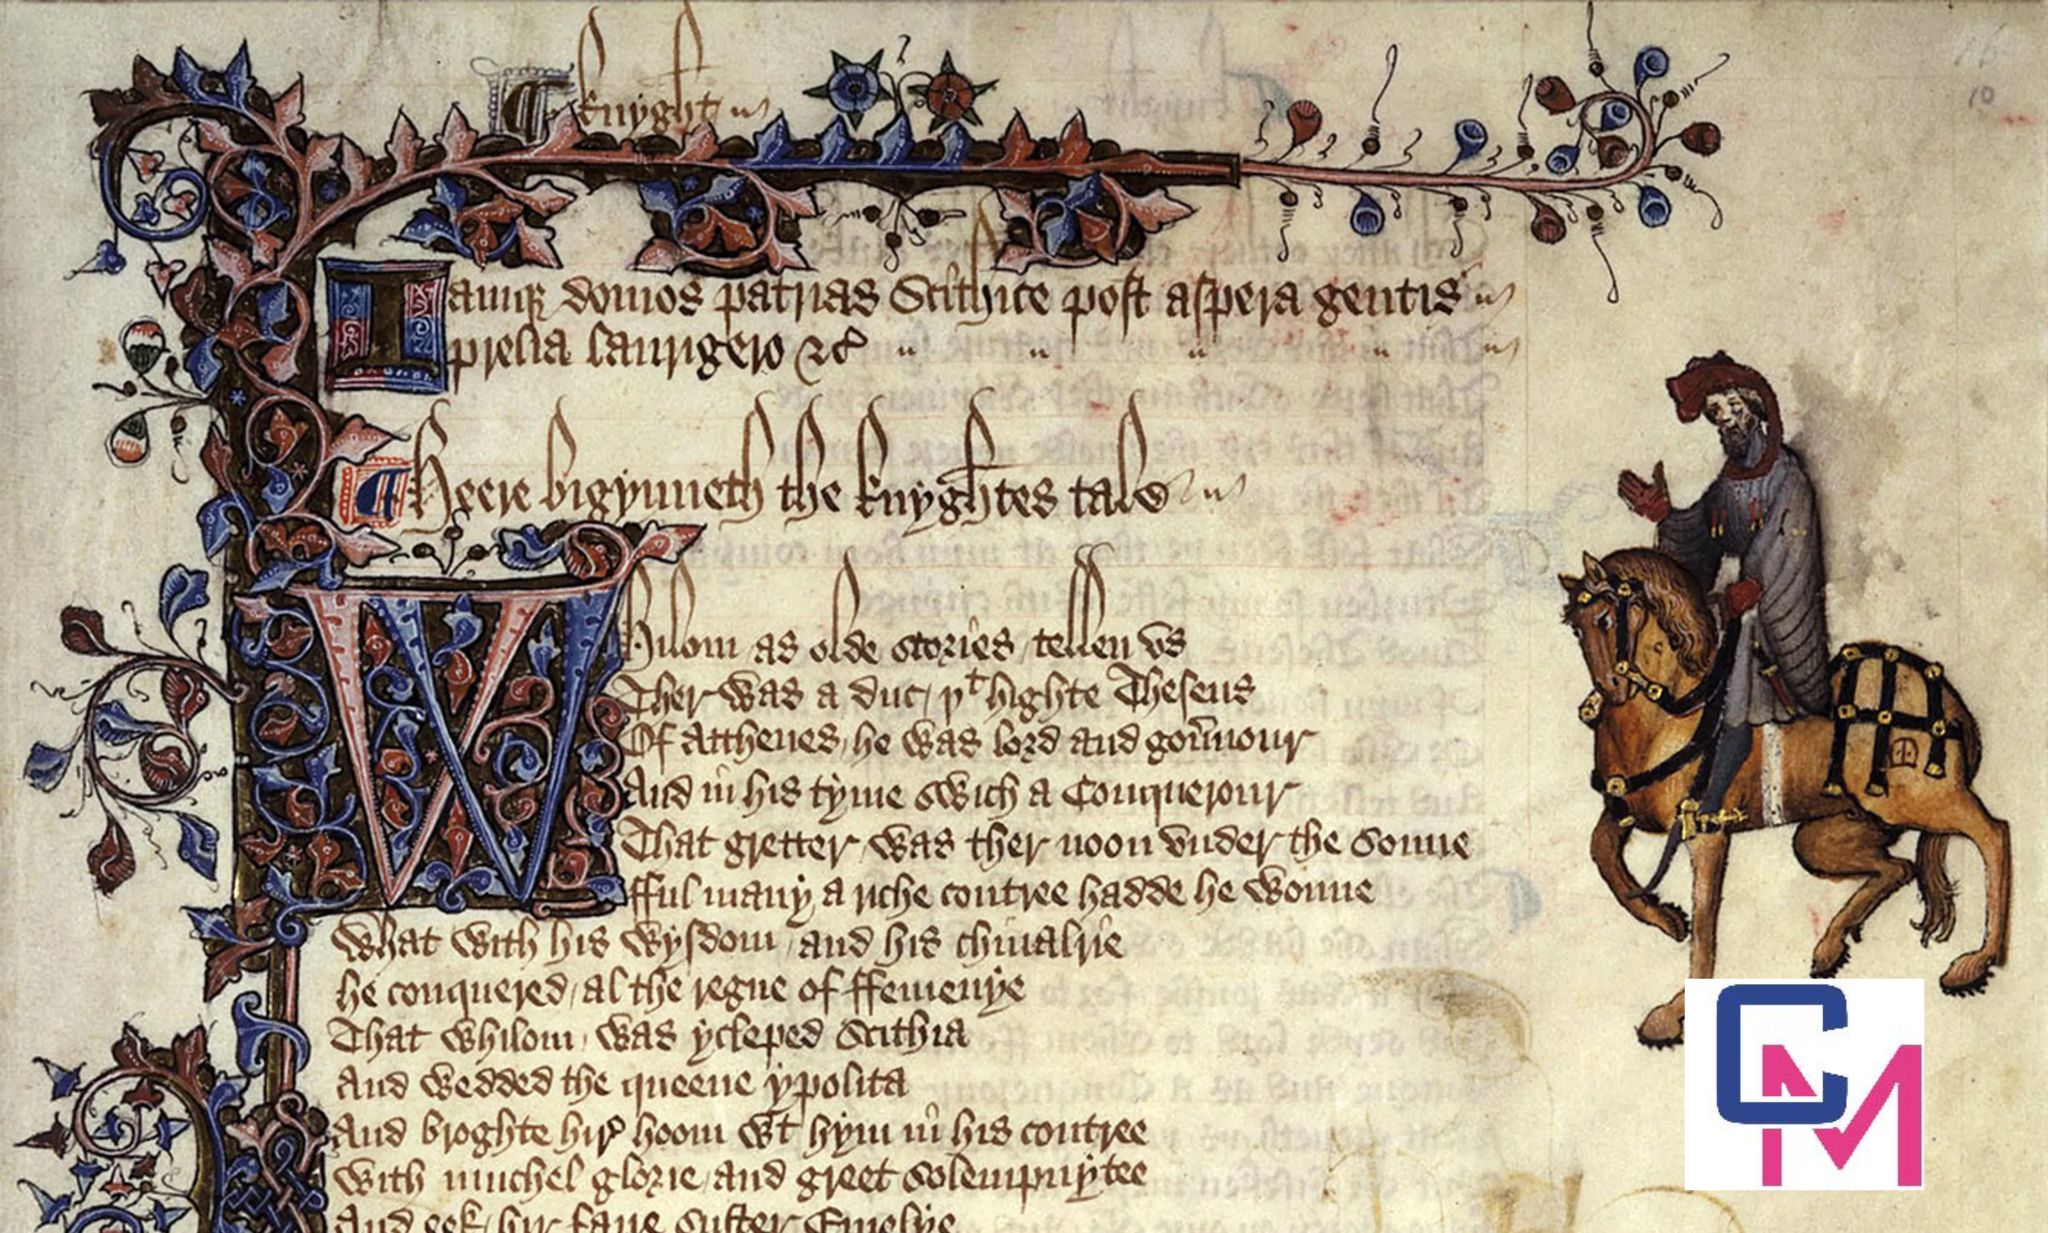 ¶ knyght
16
10
Iamqꝫ domos patrias Scithice post aspera gentis
prelia laurigero ⁊cͣ
¶ Heere bigynneth the knyghtes tale
Whilom as olde stories / tellen vs
Ther was a duc / þͭ highte Theseus
Of Atthenes / he was lord and goũnour
And in his tyme swich a Conquerour
That gretter was ther noon vnder the sonne
fful many a riche contree hadde he wonne
What with his wysdom / and his chiualrie
he conquered / al the regne of ffemenye
That whilom / was ycleped Scithia
And wedded the queene ypolita
And broghte hir̉ hoom wͭ hym in his contree
With muchel glorie / and greet solempnytee
And eek / hir faire suster Emelye
CM